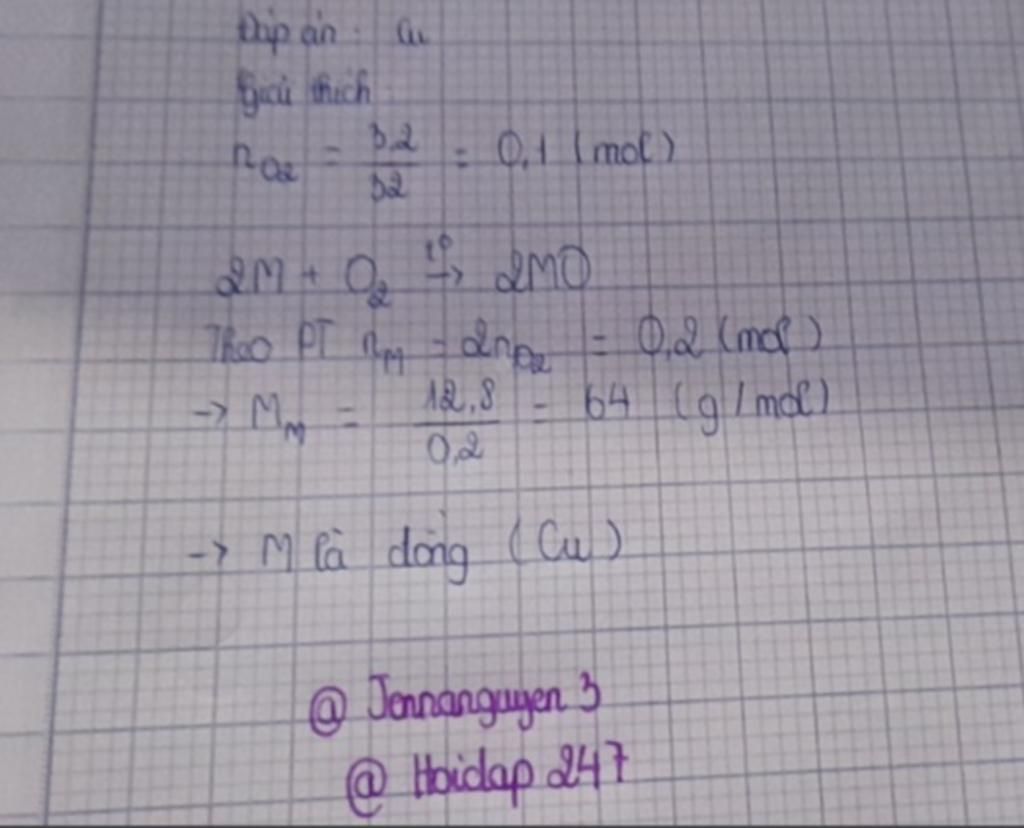 Đáp án: Cu
Giải thích
nO2 = 3,2/32 = 0,1 (mol)
2M + O2 t°→ 2MO
Theo PT nM = 2nO2 = 0,2 (mol)
-> MM = 12,8/0,2 = 64 (g/mol)
-> M là đồng (Cu)
@ Jennanguyen 3
@ Hoidap 247